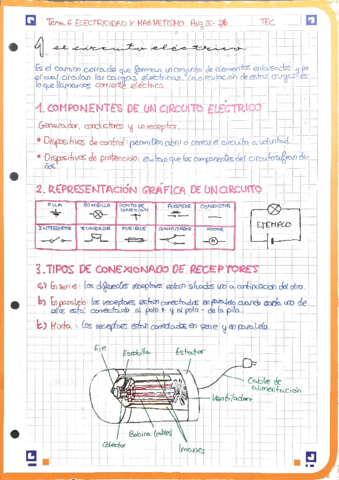 Tema 6 ELECTRICIDAD Y MAGNETISMO Pág 20-26 TEC
el circuito eléctrico
Es el camino cerrado que forman un conjunto de elementos enlazados y por
el cual circulan las cargas eléctricas. La circulación de estas cargas es
lo que llamamos corriente eléctrica.
1. COMPONENTES DE UN CIRCUITO ELÉCTRICO
Generador, conductores y un receptor.
* Dispositivos de control: permiten abrir o cerrar el circuito a voluntad.
* Dispositivos de protección: evitan que los componentes del circuito sufran da-
ños.
2. REPRESENTACIÓN GRÁFICA DE UN CIRCUITO
PILA BOMBILLA PUNTO DE CONEXIÓN PULSADOR CONDUCTOR
INTERRUPTOR ZUMBADOR FUSIBLE CONMUTADOR MOTOR
EJEMPLO
3. TIPOS DE CONEXIONADO DE RECEPTORES
a) En serie: los diferentes receptores están situados uno a continuación del otro.
b) En paralelo: los receptores están conectados en paralelo cuando cada uno de
ellos está conectando al polo + y al polo - de la pila.
c) Mixta: los receptores están conectados en serie y en paralelo.
Eje
Escobilla
Estator
Cable de
alimentación
Ventilador
Imanes
Bobina (cables)
Colector